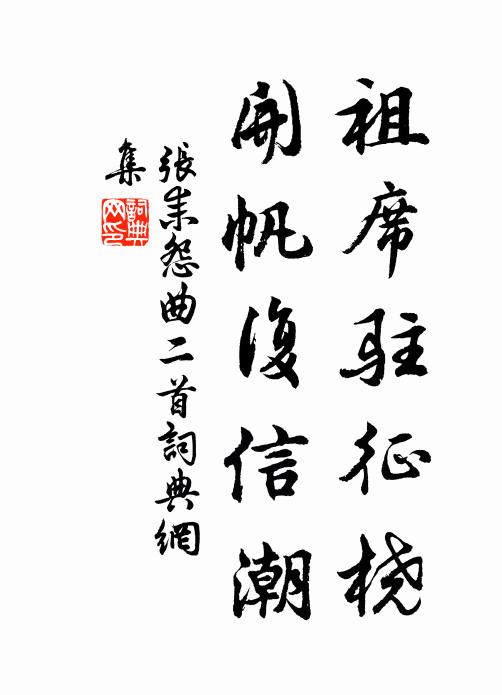 祖席駐征桡
開帆復信潮
張耒怨曲二首詞典網
集
詞典
网印